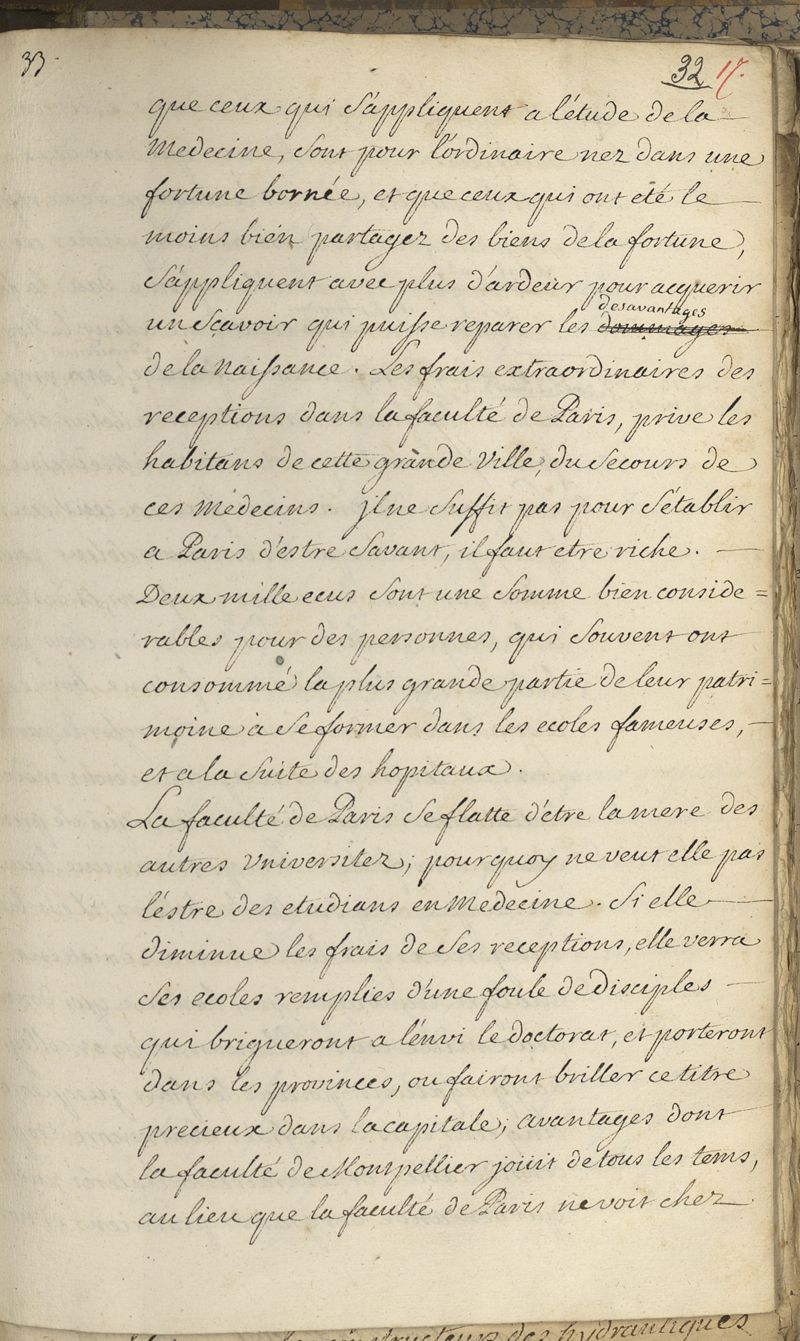 33
32 17.
que ceux qui s'appliquent a l'étude de la
Medecine, sont pour l'ordinaire nez dans une
fortune bornée, et que ceux qui ont eté le
moins bien partagez des biens de la fortune,
s'appliquent avec plus d'ardeur pour acquerir
desavantages
un scavoir qui puisse reparer les dommages
de la naissance. Les frais extraordinaires des
receptions dans la faculté de Paris, prive les
habitans de cette grande Ville, du secours de
ces Médecins. jl ne suffit pas pour s'établir
a Paris d'estre savant, il faut etre riche.
Deux mille ecus sont une somme bien conside=
rables pour des personnes, qui souvent ont
consommé la plus grande partie de leur patri=
moine à se former dans les ecoles fameuses,
et a la suite des hopitaux.
La faculté de Paris se flatte d'étre la mere des
autres Vniversitez; pourquoy ne veut elle pas
l'éstre des etudians en Medecine. Si elle
diminue les frais de ses receptions, elle verra
ses ecoles remplies d'une foule de Disciples
qui brigueront a l'envi le doctorat, et porteront
dans les provinces, ou fairont briller ce titre
precieux dans la capitale; avantages dont
la faculté de Montpellier joüit de tous les tems,
au lieu que la faculté de Paris ne voit chez
des hydrauliques